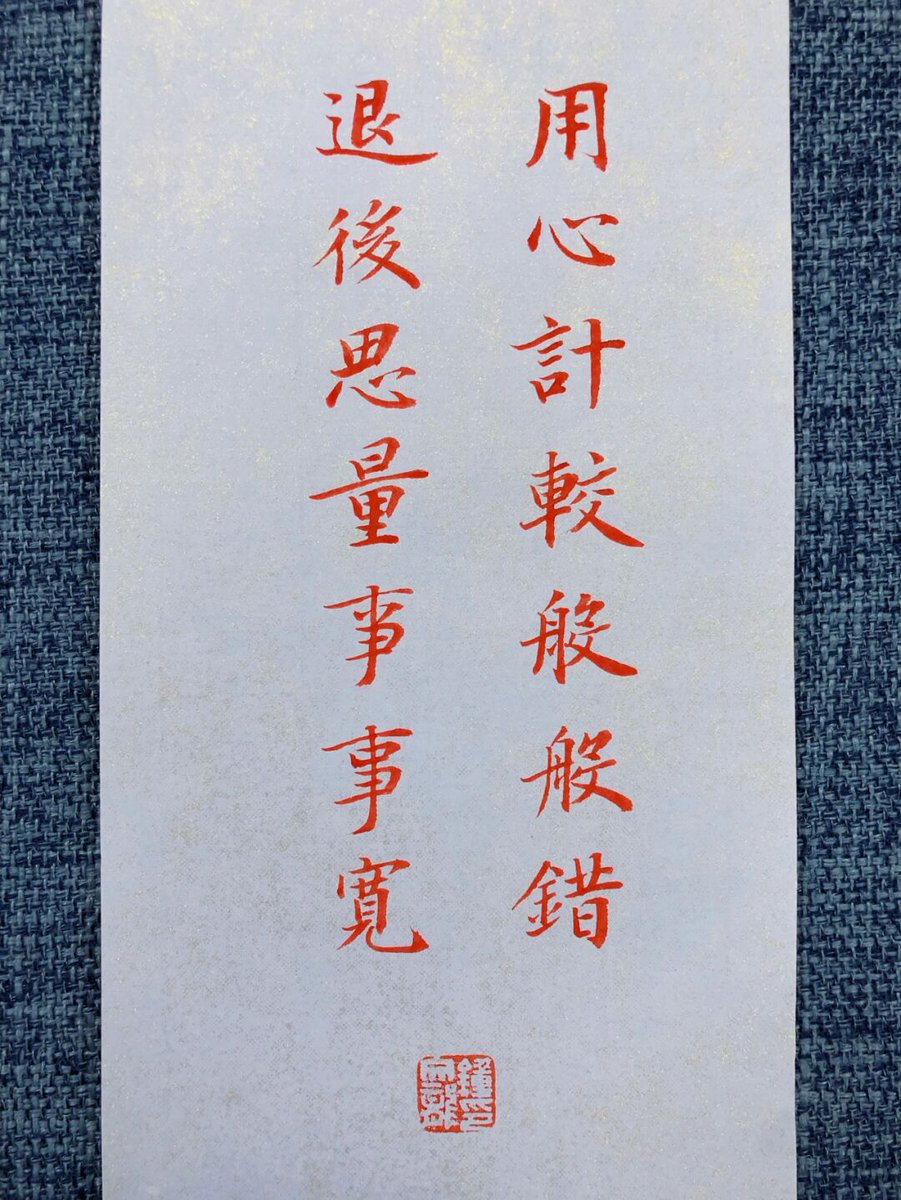 用心計較般般錯
退後思量事事寬